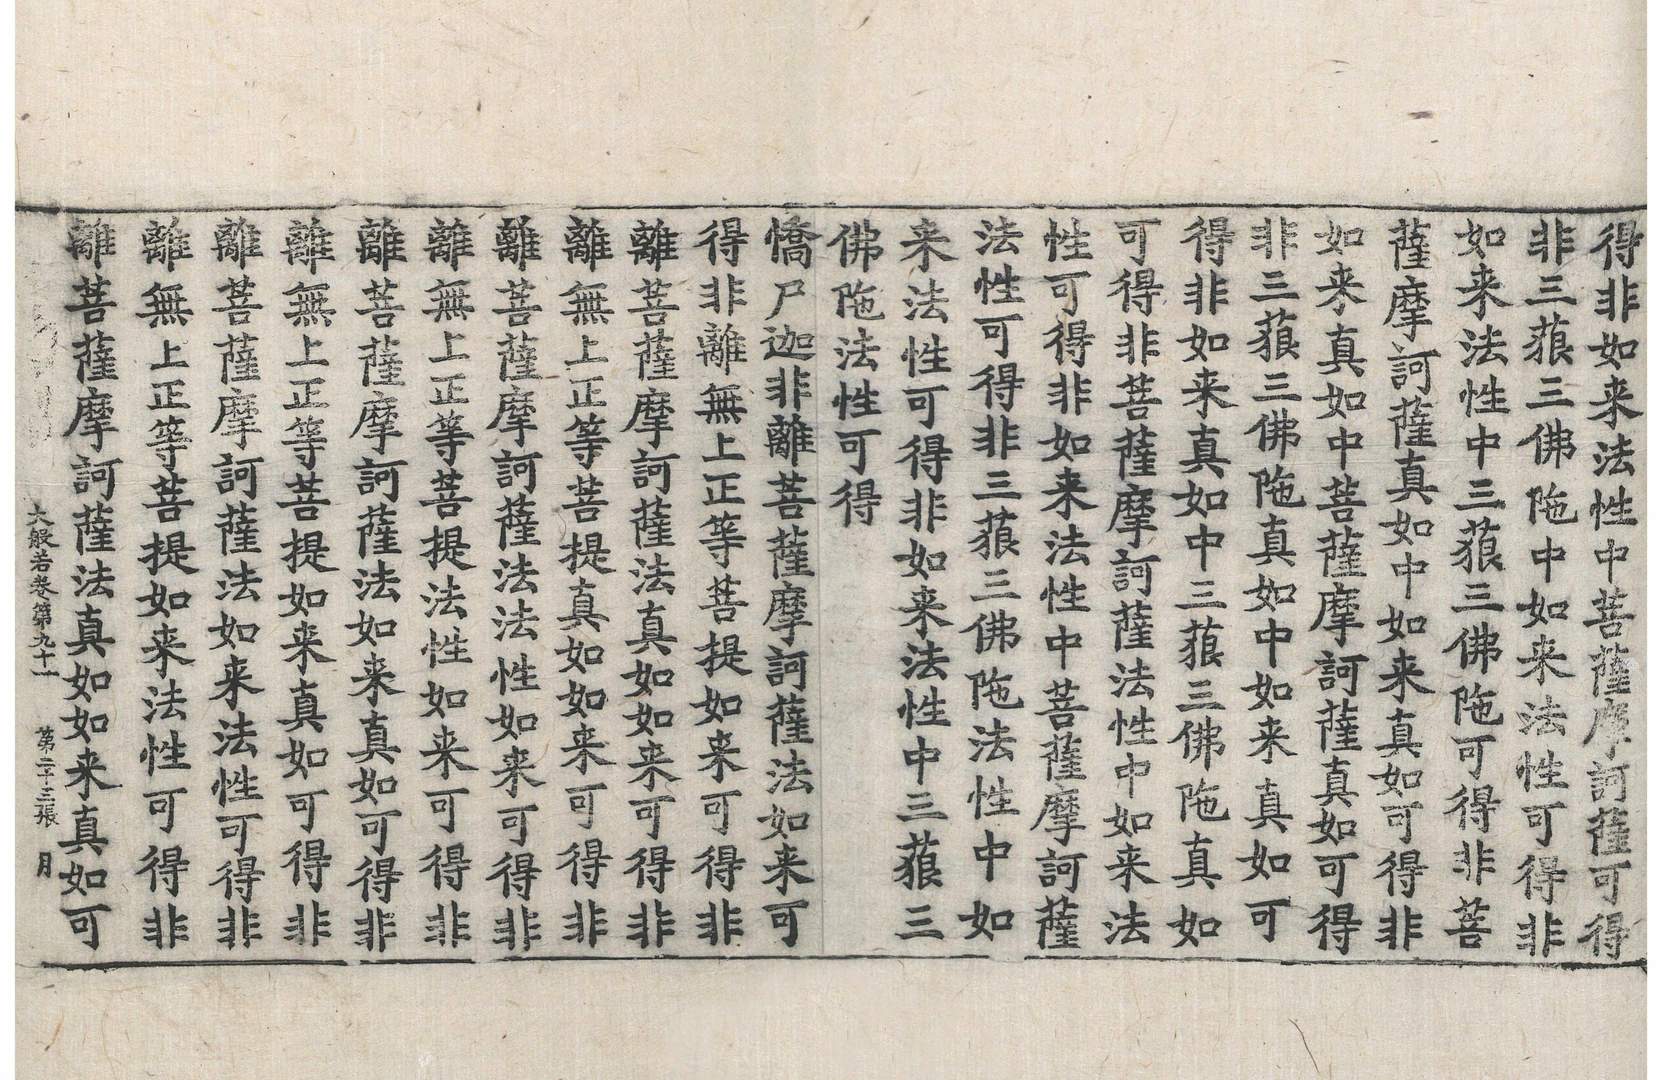 得非如来法性中菩薩摩訶薩可得
非三藐三佛陁中如来法性可得非
如来法性中三藐三佛陁可得非菩
薩摩訶薩真如中如来真如可得非
如来真如中菩薩摩訶薩真如可得
非三藐三佛陁真如中如来真如可
得非如来真如中三藐三佛陁真如
可得非菩薩摩訶薩法性中如来法
性可得非如来法性中菩薩摩訶薩
法性可得非三藐三佛陁法性中如
来法性可得非如来法性中三藐三
佛陁法性可得
憍尸迦非離菩薩摩訶薩法如来可
得非離無上正等菩提如来可得非
離菩薩摩訶薩法真如如来可得非
離無上正等菩提真如如来可得非
離菩薩摩訶薩法法性如来可得非
離無上正等菩提法性如来可得非
離菩薩摩訶薩法如来真如可得非
離無上正等菩提如来真如可得非
離菩薩摩訶薩法如来法性可得非
離無上正等菩提如来法性可得非
離菩薩摩訶薩法真如如来真如可
大般若卷第九十一 第二十三張 月